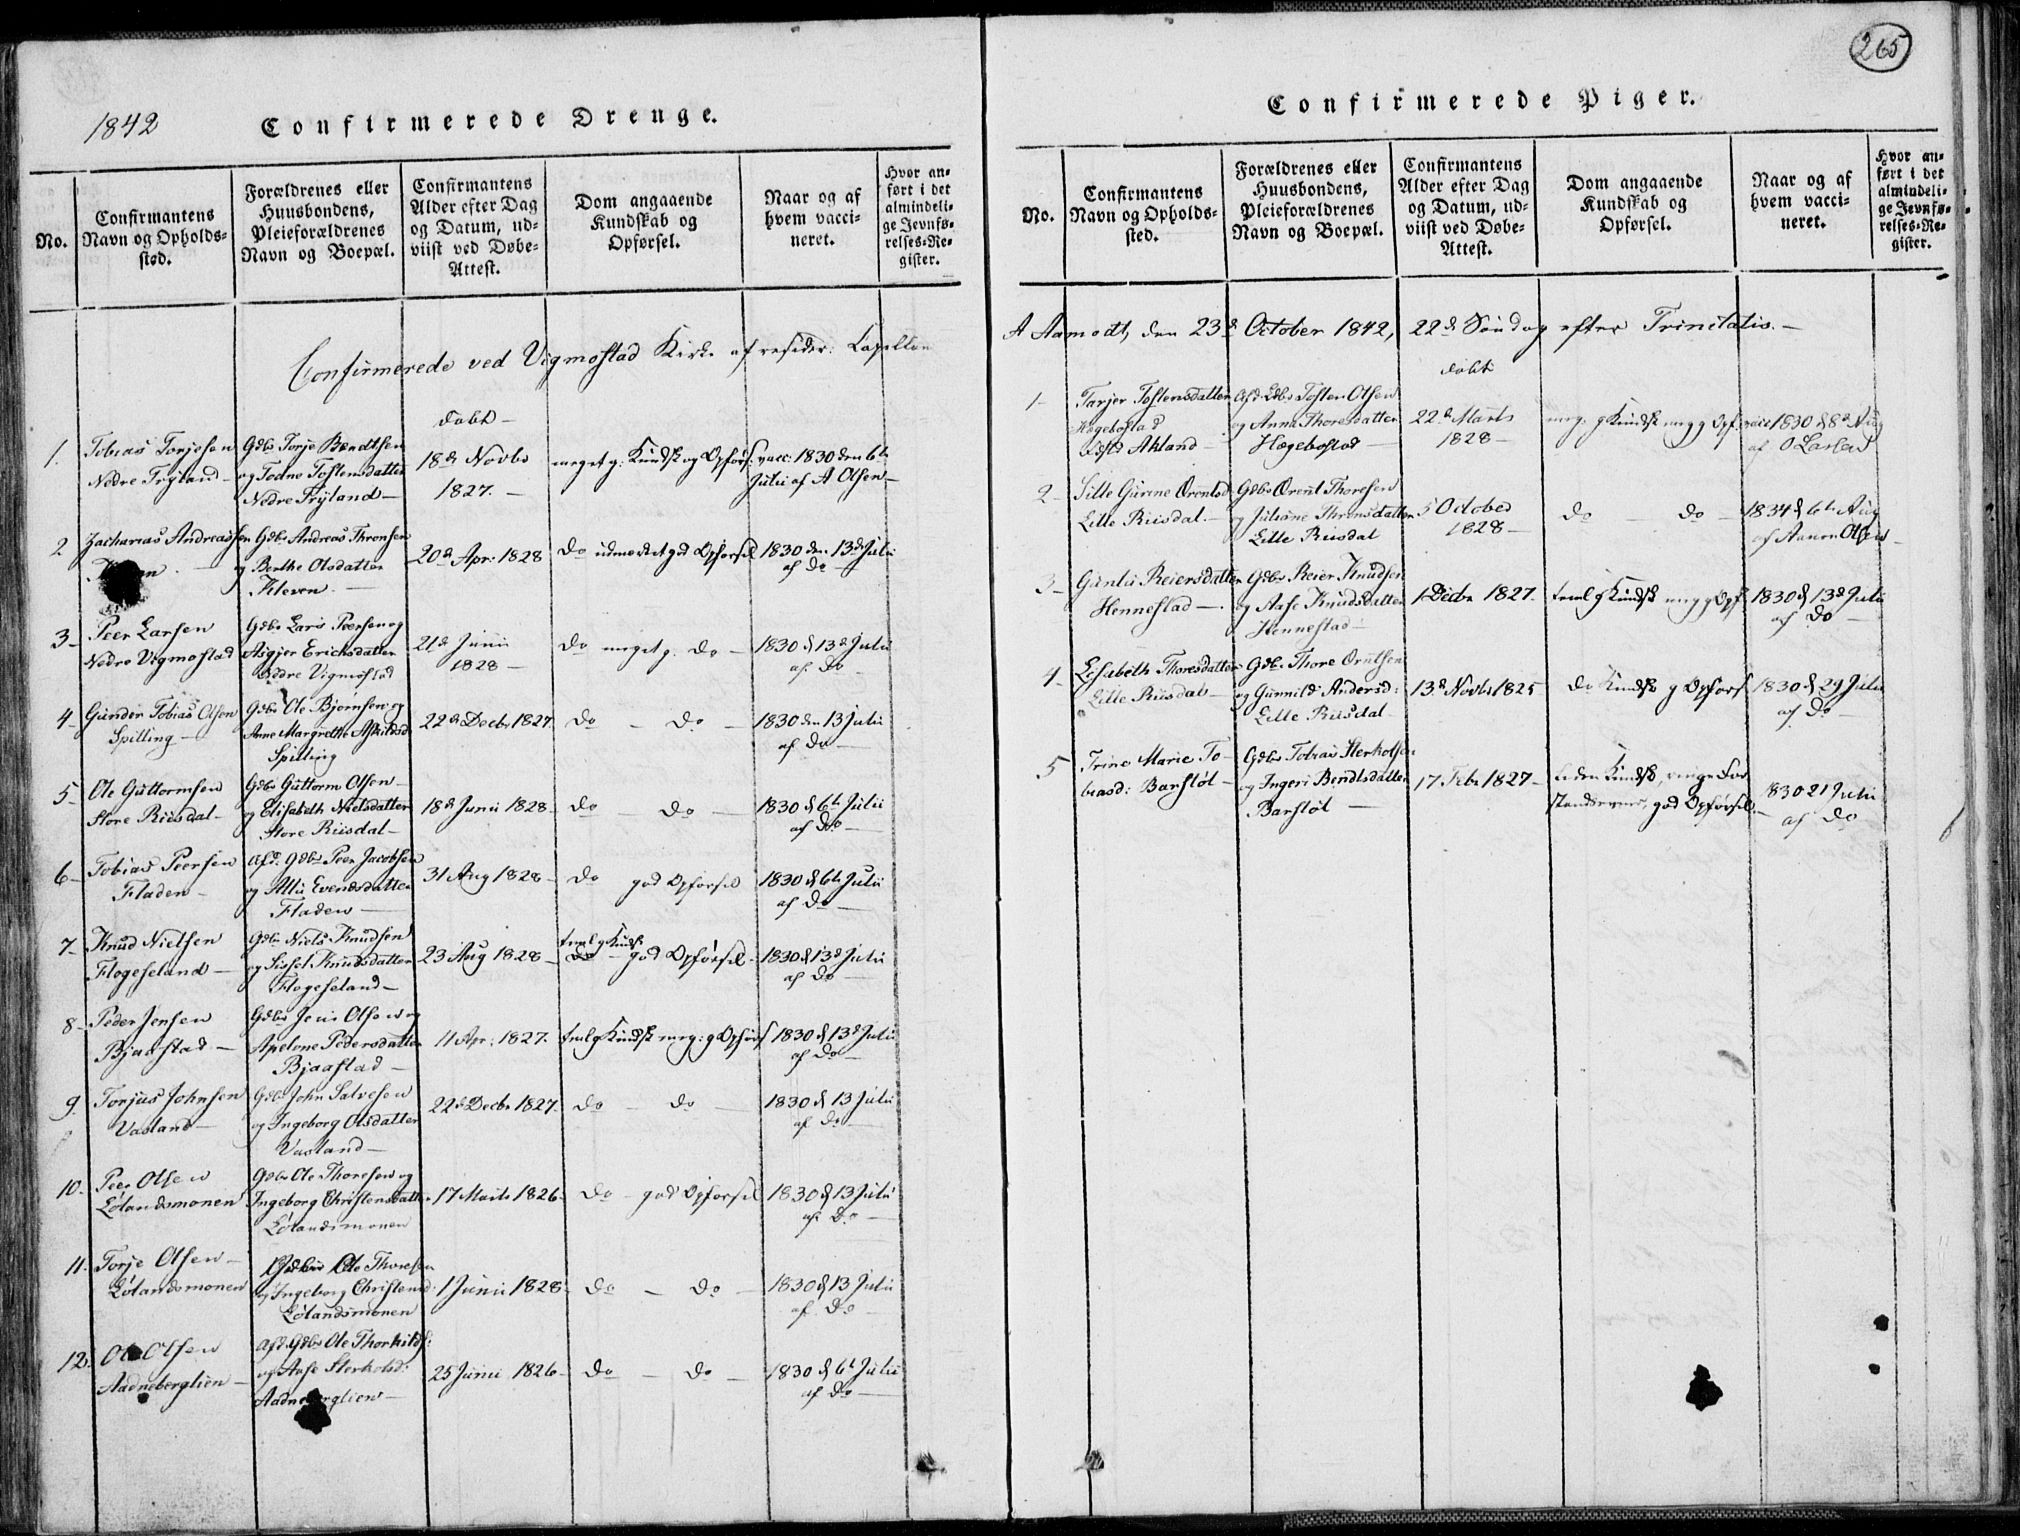 1842
Confirmerede Drenge.
No.
Confirmantens
Navn og Opholds-
sted.
Forældrenes eller
Huusbondens,
Pleieforældrenes
Navn og Boepæl.
Confirmantens
Alder efter Dag
og Datum, ud-
viist ved Døbe-
Attest.
Dom angaaende
Kundskab og
Opførsel.
Naar og af
hvem vacci-
neret.
Hvor an-
ført i det
almindeli-
ge Jevnfø-
relses-Re-
gister.
Confirmerede ved Vigmostad Kirke af resider: Capellan
døbt
1.
Tobias Torjesen
Nedre Tryland
Gdbr Torje Berndtsen
og Todne Tostensdatter
Nedre Tryland
18de Novbr
1827.
meget g: Kundsk og Opførs:
vacc: 1830 den 6te
Julii af A Olsen
2
Zacharias Andreassen
Gdbr Andreas Thronsen
og Berthe Olsdatter
Kleven
20de Apr: 1828
Do udmærket god Opførsel
1830 den 13de Julii
af Do
3
Peer Larsen
Nedre Vigmostad
Gdbr Lars Peersen og
Asgjer Erichsdatter
Nedre Vigmostad
21de Junii
1828
Do meget g. Do
1830 d 13de Julii
af Do
4
Gunder Tobias Olsen
Spilling
Gdbr Ole Bjørnsen og
Anne Margrethe Askildsd
Spilling
22de Decbr 1827.
Do - Do
1830 den 13 Julii
af Do
5
Ole Guttormsen
Store Riisdal
Gdbr Guttorm Olsen
og Elisabeth Nielsdatter
Store Riisdal
18de Junii 1828
Do - Do
1830 d 6te Julii
af Do
6
Tobias Peersen
Fladen
Afd. Gdbr Peer Jacobsen
og Atlu Evendsdatter
Fladen
31 Aug 1828
Do god Opførsel
1830 d 6te Julii
af Do
7
Knud Nielsen
Flogeseland
Gdbr Niels Knudsen
og Sissel Knudsdatter
Flogeseland
23 Aug 1828
teml g Kundsk
Do - god Opførsel
1830 d 13de Julii
af Do
8
Peder Jensen
Bjaastad
Gdbr Jens Olsen og
Apelone Pedersdatter
Bjaastad
11 Apr: 1827.
teml g Kundsk meg: g Opførs
1830 d 13de Julii
af Do
9.
Torjus Johnsen
Vasland
Gdbr John Salvesen
og Ingeborg Olsdatter
Vasland
22de Decbr 1827.
Do - Do
1830 d 13 Julii
af Do
10.
Peer Olsen
Lølandsmonen
Gdbr Ole Thoresen og
Ingeborg Christensdatter
Lølandsmonen
17 Marts 1826
Do - god Opførsel
1830 d 13 Julii
af Do
11.
Torje Olsen
Lølandsmonen
Gdbr Ole Thoresen
og Ingeborg Christensd
Lølandsmonen
1 Junii 1828
Do - Do
1830 d 13 Julii
af Do
12.
Ole Olsen
Aadneberglien
Afd. Gdbr Ole Thorkilds:
og Aase Sterkolsd:
Aadneberglien
25 Junii 1826
Do - Do
1830 d 6t Julii
af Do
265
Confirmerede Piger.
No.
Confirmantens
Navn og Opholds-
sted.
Forældrenes eller
Huusbondens,
Pleieforældrenes
Navn og Boepæl.
Confirmantens
Alder efter Dag
og Datum, ud-
viist ved Døbe-
Attest.
Dom angaaende
Kundskab og
Opførsel.
Naar og af
hvem vacci-
neret.
Hvor an-
ført i det
almindeli-
ge Jevnfø-
relses-Re-
gister.
A Aamodt, den 23de October 1842, 22de Søndag efter Trinitatis.
døbt
1
Tarjer Tostensdatter
Hægebostad
Akland
Afd. Gdbr Tosten Olsen
og Anna Thoresdatter
Hægebostad
22de Marts
1828
meg. g Kundsk meg g Opf:
vacc 1830 d 8de Aug
af O Larsen
2
Sille Gurine Orentsd
Lille Riisdal
Gdbr Orent Thoresen
og Juliane Thronsdatter
Lille Riisdal
5 October
1828
Do - Do
1834 d 6te Aug
af Aanen Olsen
3
Guntu Reiersdatter
Hennestad
Gdbr Reier Knudsen
og Aase Knudsdatter
Hennestad
1 Decbr 1827.
teml g Kundsk meg g Opf
1830 d 13de Julii
af Do
4
Elisabeth Thoresdatter
Lille Riisdal
Gdbr Thore Orntsen
og Gunnild Andersd:
Lille Riisdal
13de Novbr 1825
Do Kundsk g Opførs
1830 d 29 Julii
af Do
5
Trine Marie To-
biasd: Barstøl
Gdbr Tobias Sterkolsen
og Ingeri Berndtsdatter
Barstøl
17 Febr 1827
Liden Kundsk, ringe For
standsevner, god Opførsel
1830 21 Julii
af Do